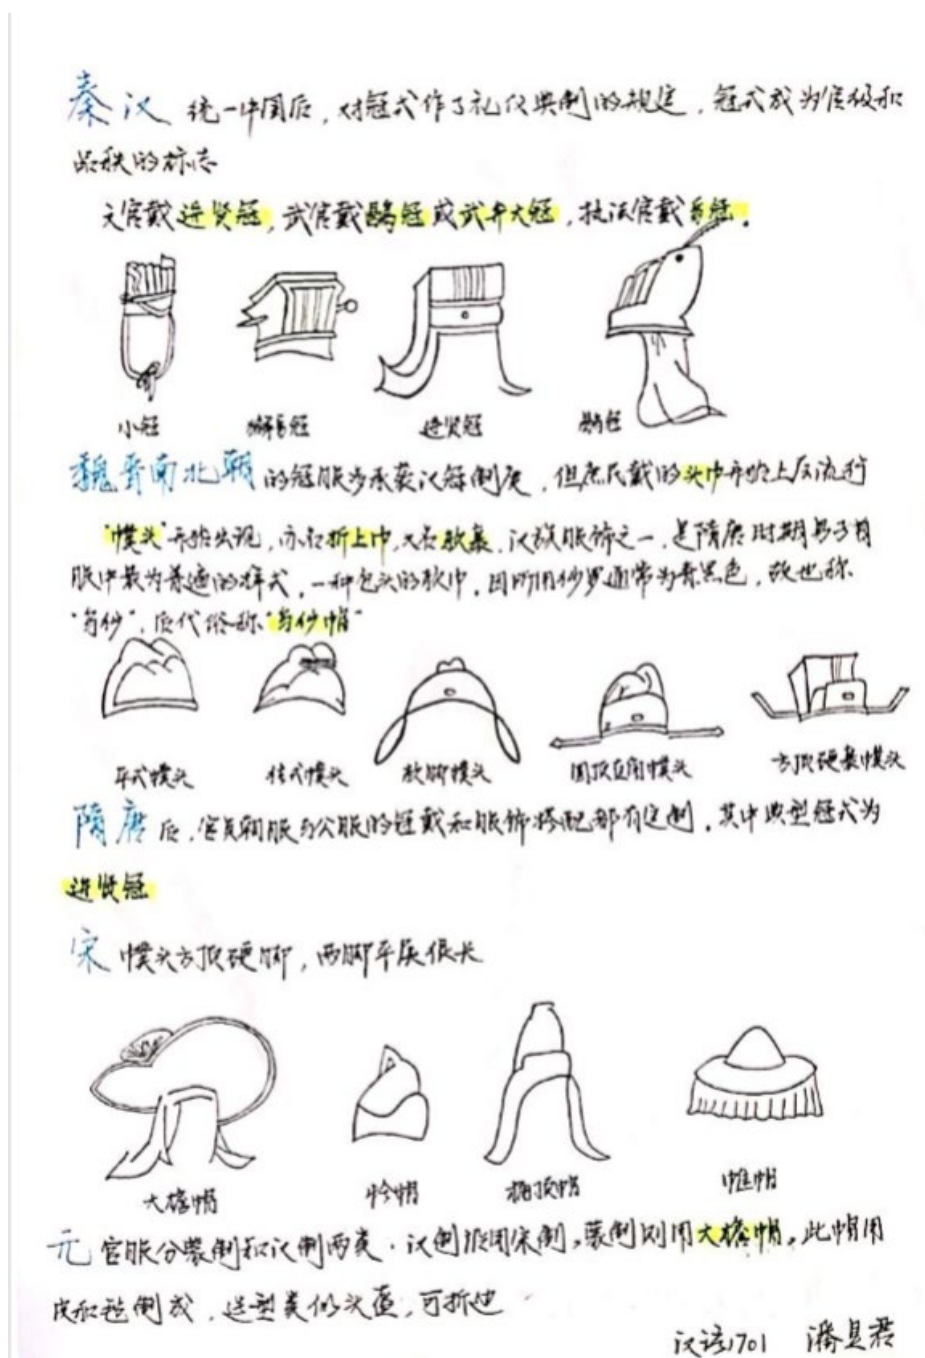 秦汉 统一中国后，对冠式作了礼仪典制的规定，冠式成为官级和
品秩的标志
文官戴进贤冠，武官戴鹖冠或武弁大冠，执法官戴豸冠。
小冠 獬豸冠 进贤冠 鹖冠
魏晋南北朝的冠服多承袭汉冠制度，但庶民戴的头巾开始上层流行
"幞头"开始出现，亦名折上巾，又名软裹，汉族服饰之一，是隋唐时期男子首
服中最为普遍的样式，一种包头的软巾，因所用纱罗通常为青黑色，故也称
"乌纱"，后代俗称"乌纱帽"
平式幞头 结式幞头 软脚幞头 圆顶直角幞头 方顶硬裹幞头
隋唐后，官员朝服与公服的冠戴和服饰搭配都有定制，其中典型冠式为
进贤冠
宋 幞头方顶硬脚，两脚平展很长
大檐帽 帽 顶帽 帷帽
元 官服分蒙制和汉制两类，汉制沿用宋制，蒙制则用大檐帽，此帽用
皮和毡制成，造型类似头盔，可折边
汉语1701 潘君